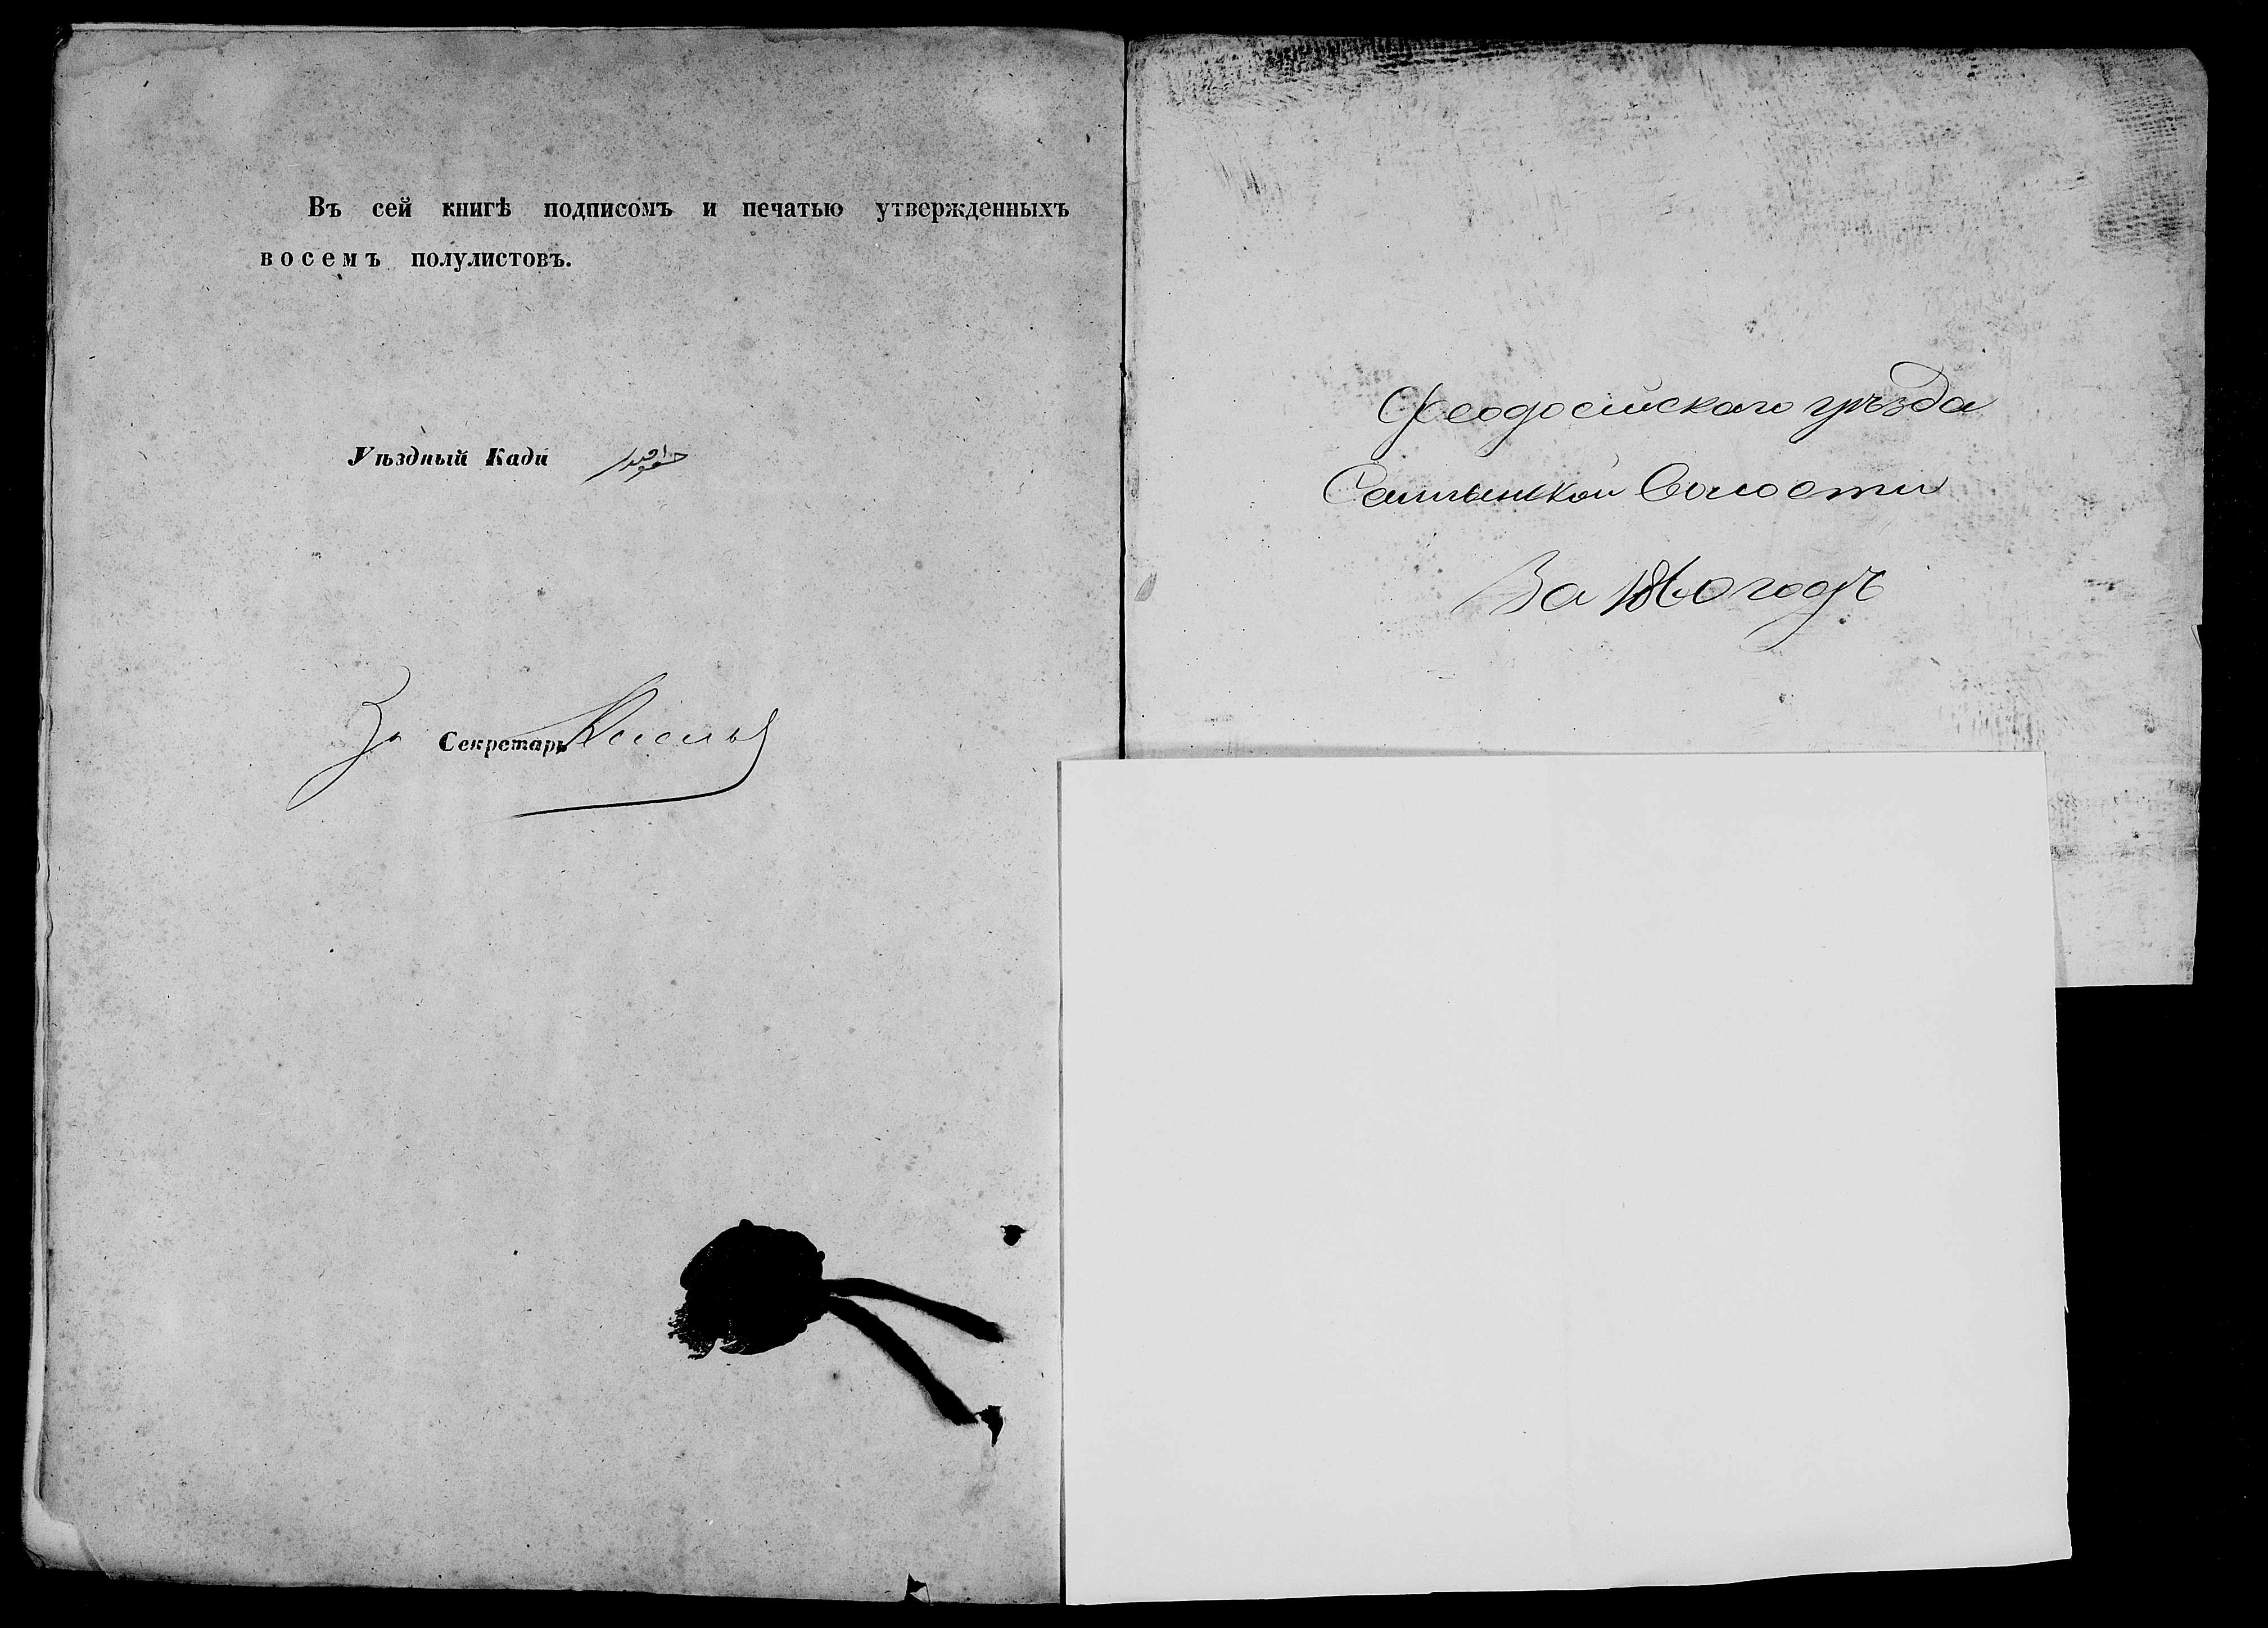 Въ сей книгѣ подписомъ и печатью утвержденныхъ
восемъ полулистовъ.
Уѣздный Кади
За Секретарь
Феодосийскаго уѣзда
Волости
За 1860 годъ